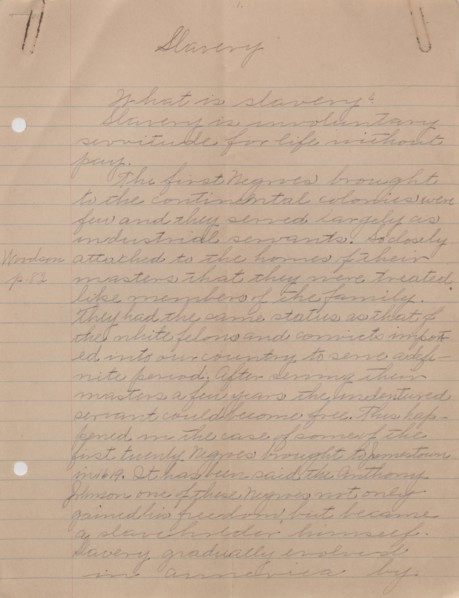 Slavery
What is slavery?
Slavery is involuntary
servitude for life without
pay.
The first Negroes brought
to the continental colonies were
few and they served largely as
industrial servants. So closely
Woodson attached to the homes of their
p. 82 masters that they were treated
like members of the family.
They had the same status as that of
the white felons and convicts import-
ed into our country to serve a defi-
nite period. After serving their
masters a few years the indentured
servant could become free. This hap-
pened in the case of some of the
first twenty Negroes brought to Jamestown
in 1619. It has been said, the Anthony
Johnson one of these Negroes not only
gained his freedom but became
a slaveholder himself.
Slavery gradually evolved
in America by